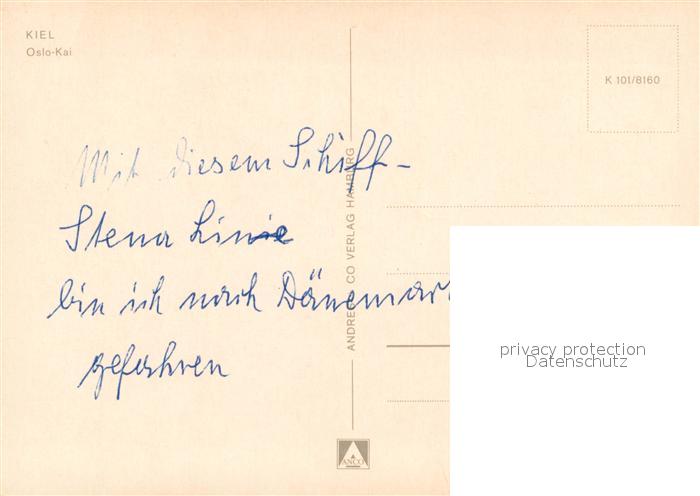 KIEL
Oslo-Kai
K 101/8160
Mit diesem Schiff -
Stena Linie
bin ich nach Dänemark
gefahren
CO VERLAG HAMBURG
ANCO
privacy protection
Datenschutz